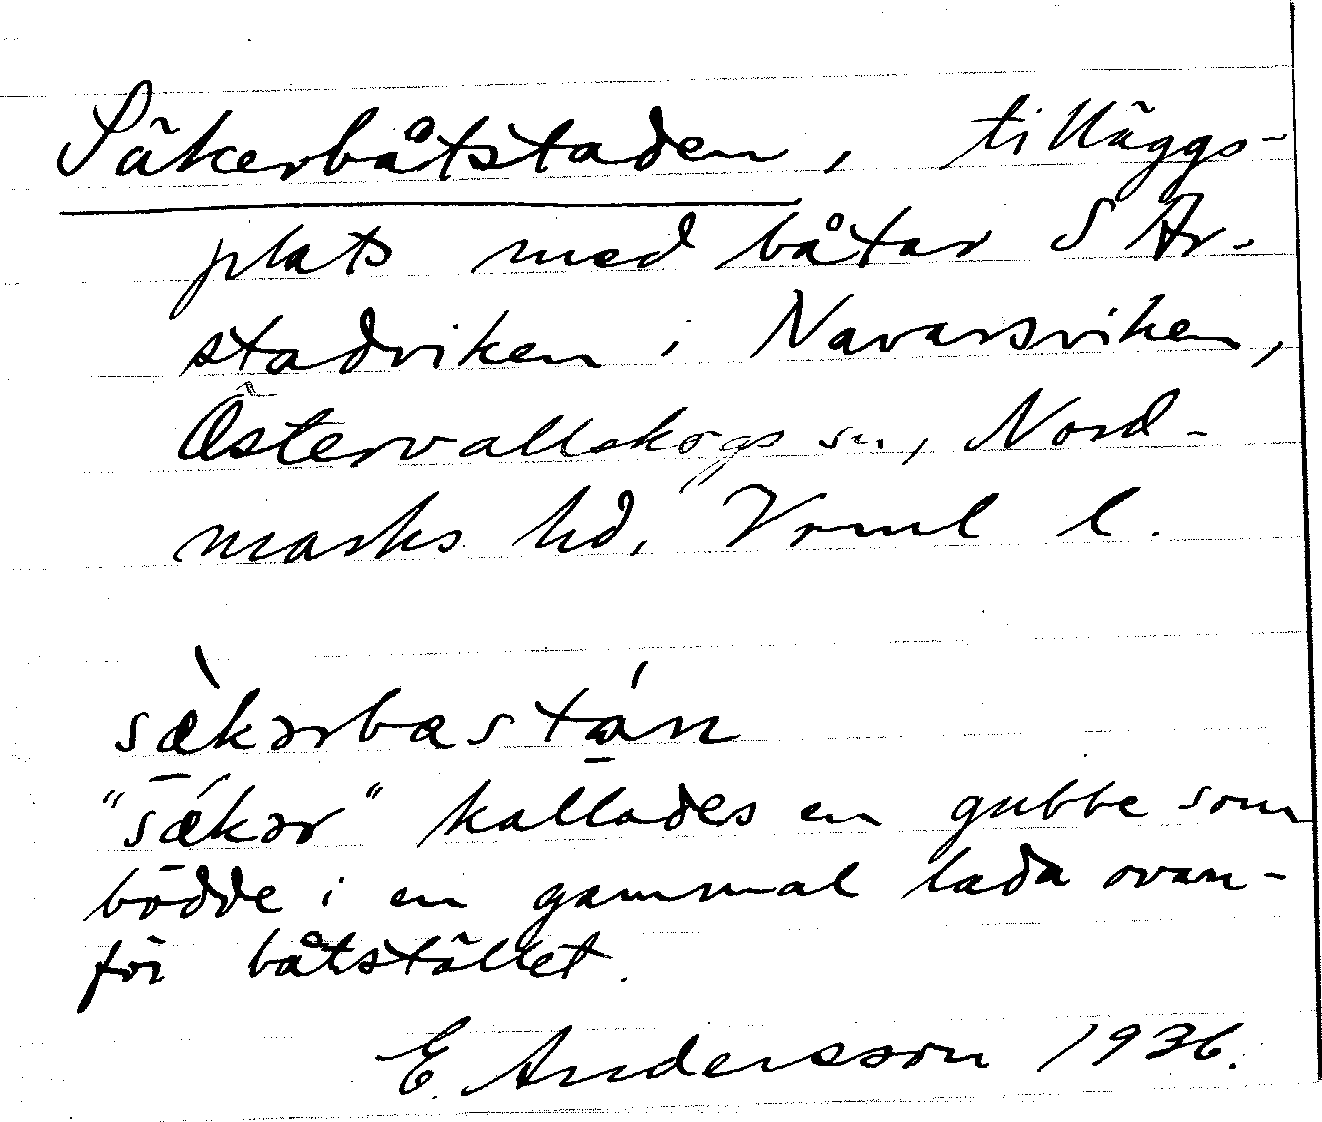 Säkerbåtstaden, tilläggs-
plats med båtar S År-
stadviken i Navarsviken,
Östervallskogs sn, Nord-
marks hd, Vrml l.
sæ̀kərbastán
"sǽkər" kallades en gubbe som
bodde i en gammal lada ovan-
för båtstället.
E. Andersson 1936.